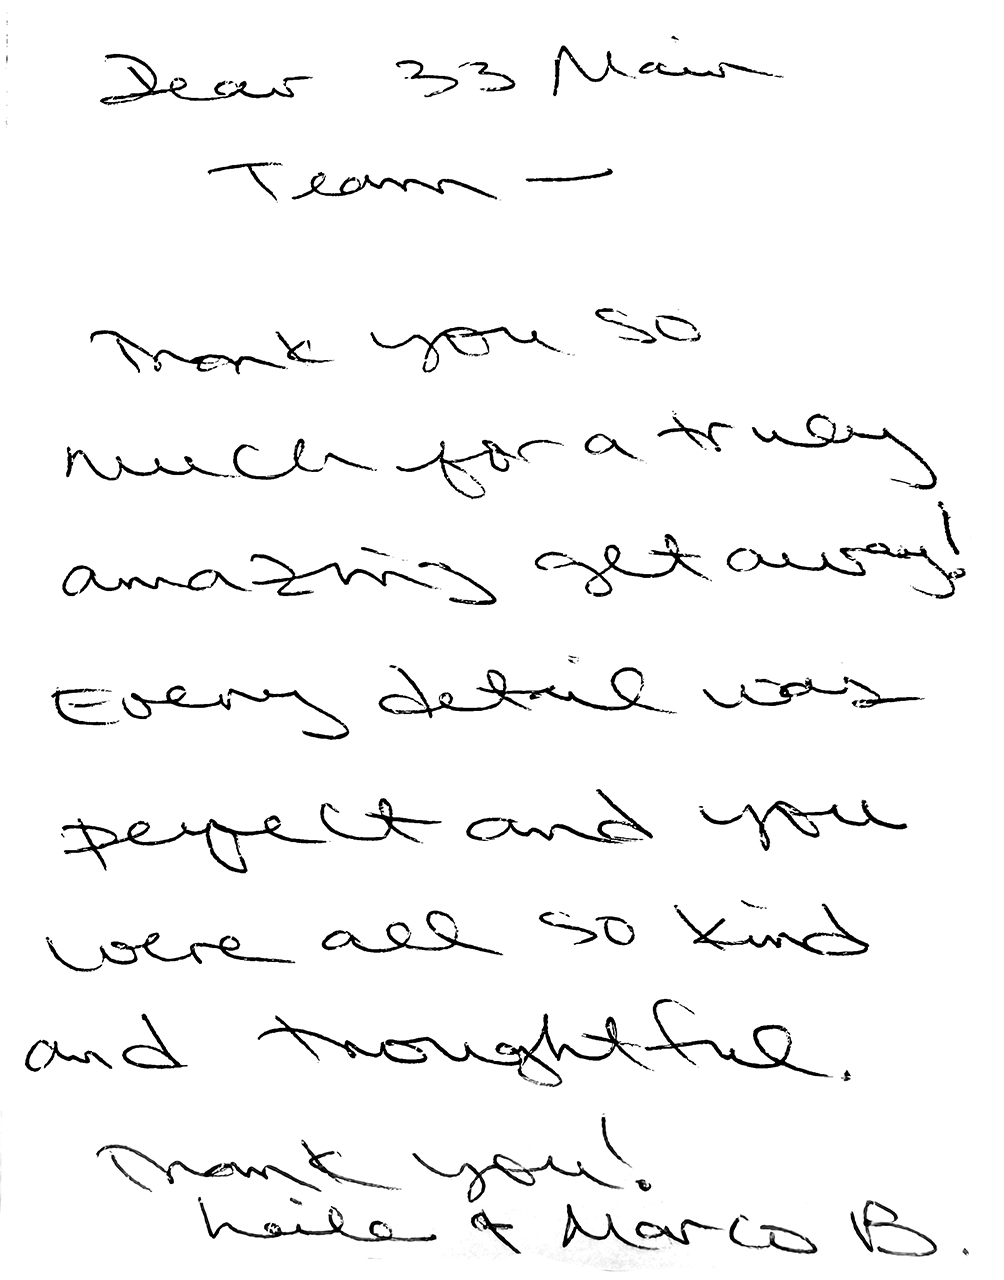 Dear 33 Main
Team —
Thank you so
much for a truley
amazing get away!
Every detail was
perfect and you
were all so kind
and thoughtful.
Thank you!
Leila & Marco B.